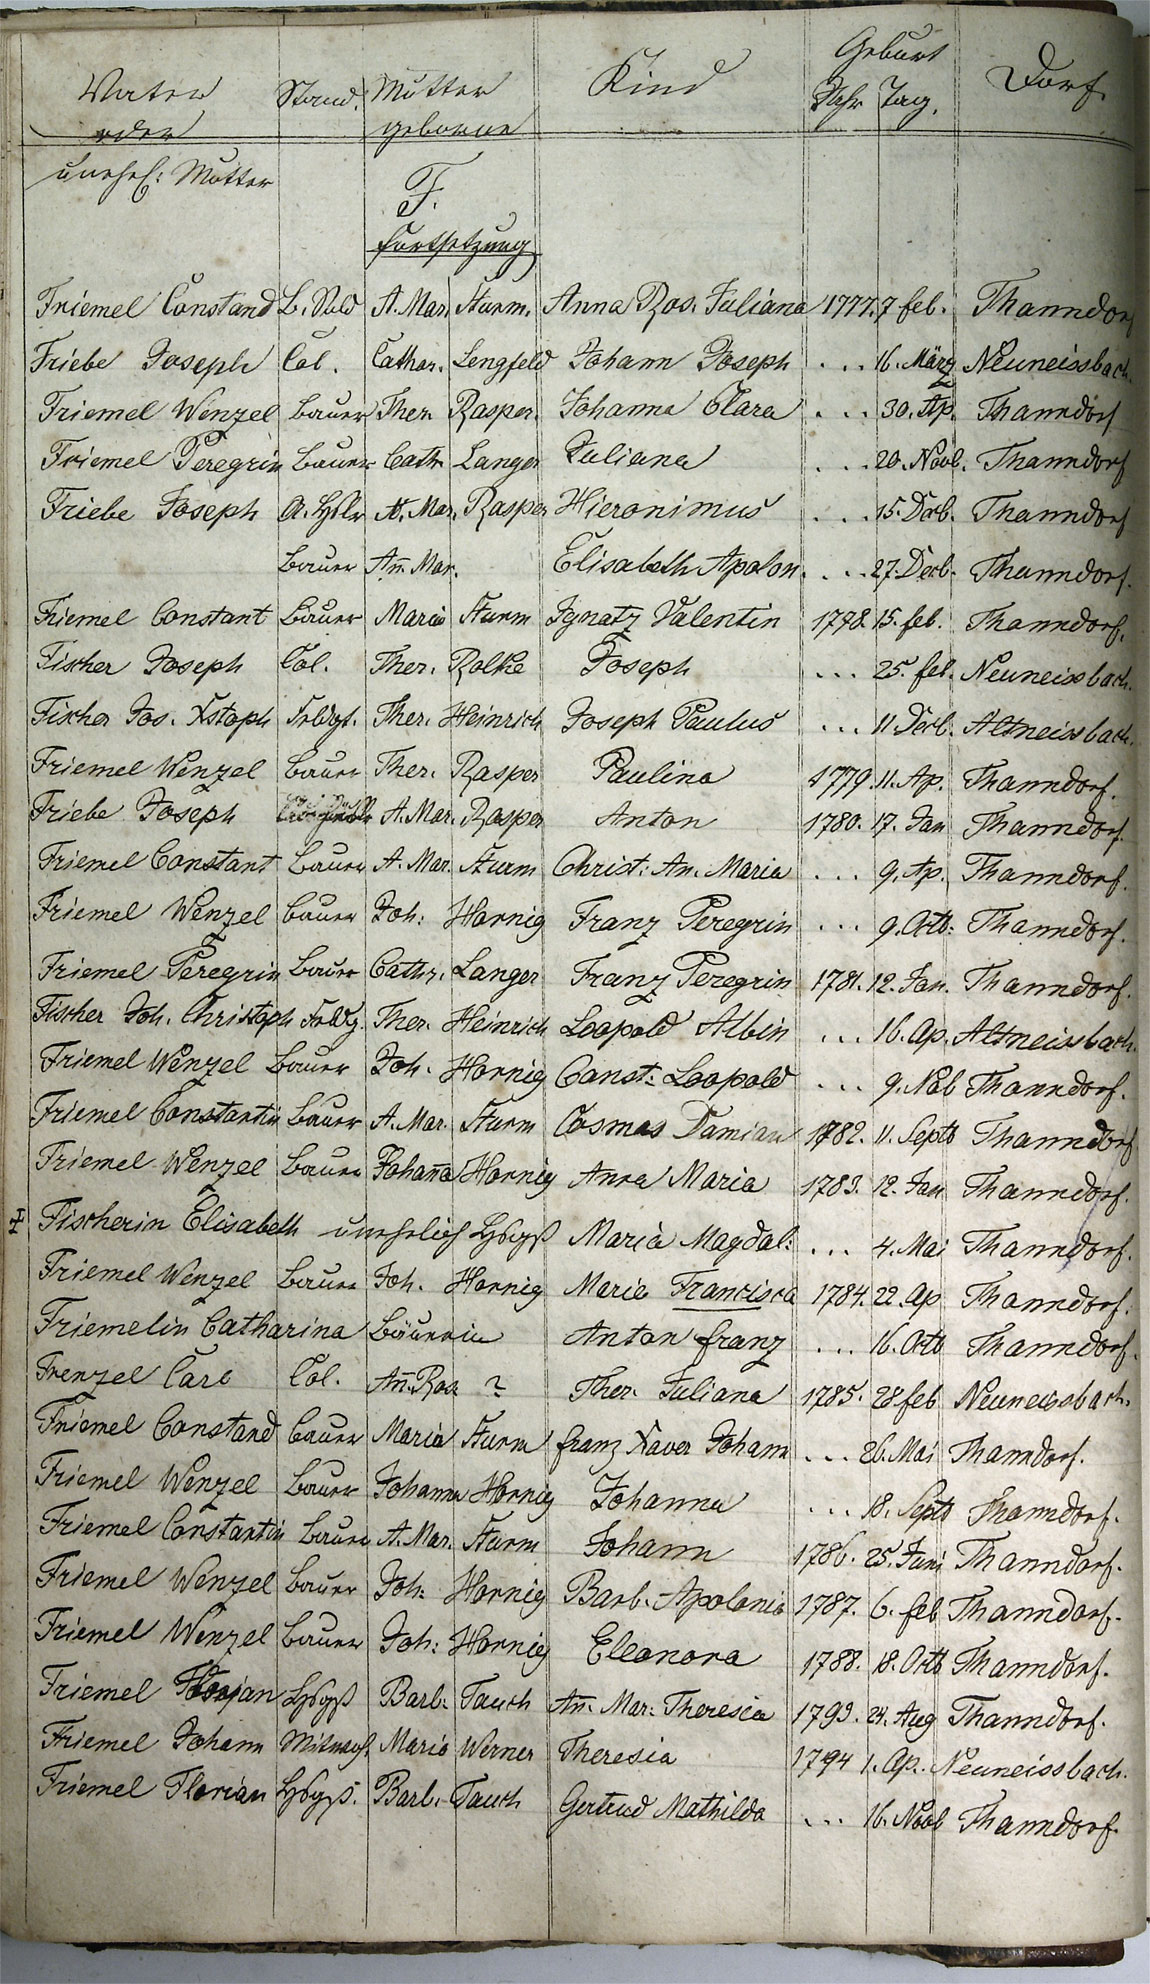 Geburt
Vater Stand. Mutter Kind Jahr Tag. Dorf.
oder geborne
unehel: Mutter
F.
Fortsetzung
Friemel Constand B. A. Mar. Sturm. Anna Ros. Juliana 1777. 7 feb. Thanndorf
Friebe Joseph Col. Cathar. Lengfeld Johann Joseph ... 16. März Neuneissbach.
Friemel Wenzel Bauer Ther. Rasper. Johanna Clara ... 30. Ap. Thanndorf
Friemel Peregrin Bauer Cath. Langer Juliana ... 20. Novb. Thanndorf
Friebe Joseph A. Mar. Rasper Hieronimus ... 15. Decb. Thanndorf
Bauer An̄ Mar. Elisabeth Apolon. ... 27. Decb. Thanndorf.
Friemel Constant Bauer Maria Sturm Ignatz Valentin 1778. 15. feb. Thanndorf.
Fischer Joseph Col. Ther. Rolke Joseph ... 25. feb. Neuneissbach.
Fischer Jos. Xstoph Ther. Heinrich Joseph Paulus ... 11 Decb. Altneissbach.
Friemel Wenzel Bauer Ther. Rasper Paulina 1779. 11. Ap. Thanndorf.
Friebe Joseph A. Mar. Rasper Anton 1780. 17. Jan Thanndorf.
Friemel Constant Bauer A. Mar. Sturm Christ: An. Maria ... 9. Ap. Thanndorf.
Friemel Wenzel Bauer Joh: Hornig Franz Peregrin ... 9. Octb: Thanndorf.
Friemel Peregrin Bauer Cathr. Langer Franz Peregrin 1781. 12. Jan. Thanndorf.
Fischer Joh. Christoph Ther. Heinrich Leopold Albin ... 16. Ap. Altneissbach.
Friemel Wenzel Bauer Joh. Hornig Const: Leopold ... 9. Nob Thanndorf.
Friemel Constantin Bauer A. Mar. Sturm Cosmas Damian 1782. 11. Septb Thanndorf.
Friemel Wenzel Bauer Johan̄a Hornig Anna Maria 1783. 12. Jan Thanndorf.
Fischerin Elisabeth unehelich Hsbgß Maria Magdal: ... 4. Mai Thanndorf.
Friemel Wenzel Bauer Joh. Hornig Maria Francisca 1784. 22. Ap Thanndorf.
Friemelin Catharina Bäuerin Anton franz ... 16. Octb Thanndorf.
Frenzel Carl Col. An̄. Ros ? Ther. Juliana 1785. 28 feb Neuneissbach.
Friemel Constand Bauer Maria Sturm franz Xaver Johann ... 26. Mai Thanndorf.
Friemel Wenzel Bauer Johanna Hornig Johanna ... 18. Septb Thanndorf.
Friemel Constantin Bauer A. Mar. Sturm Johann 1786. 25. Juni Thanndorf.
Friemel Wenzel Bauer Joh: Hornig Barb. Apolonia 1787. 6. feb Thanndorf.
Friemel Wenzel Bauer Joh: Hornig Eleonora 1788. 18. Octb Thanndorf.
Friemel Florian Hsbgß Barb: Tauch An̄. Mar: Theresia 1793. 24. Aug Thanndorf.
Friemel Johann Maria Werner Theresia 1794 1. Ap. Neuneissbach.
Friemel Florian Hsbgß. Barb. Tauch Gertrud Mathilda ... 16. Novb Thanndorf.